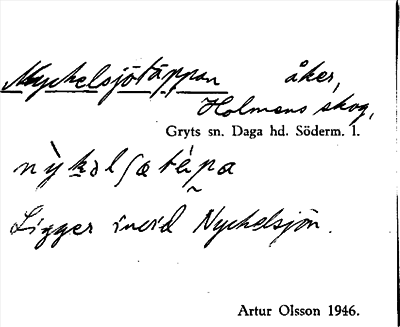 Nyckelsjötäppan åker,
Holmens skog,
Gryts sn. Daga hd. Söderm. l.
nỳkəlʃøtɛ́pa
Ligger invid Nyckelsjön.
Artur Olsson 1946.